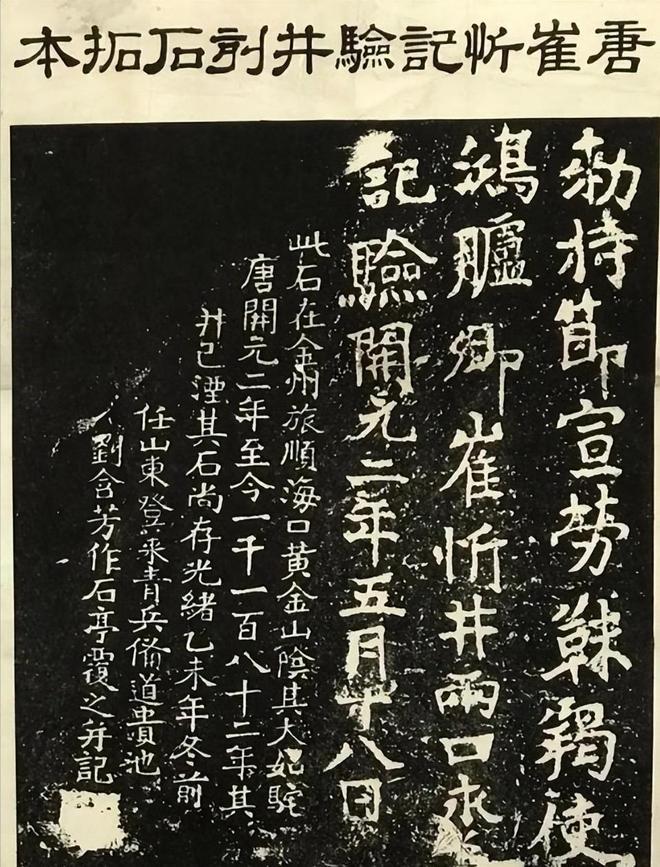 唐崔忻記驗井刻石拓本
勅持節宣勞靺鞨使
鴻臚卿崔忻井兩口永為
記驗開元二年五月十八日
此石在金州旅順海口黃金山陰其大如駝
唐開元二年至今一千一百八十二年其
井已湮其石尚存光緒乙未年冬前
任山東登萊青兵備道貴池
劉含芳作石亭覆之并記